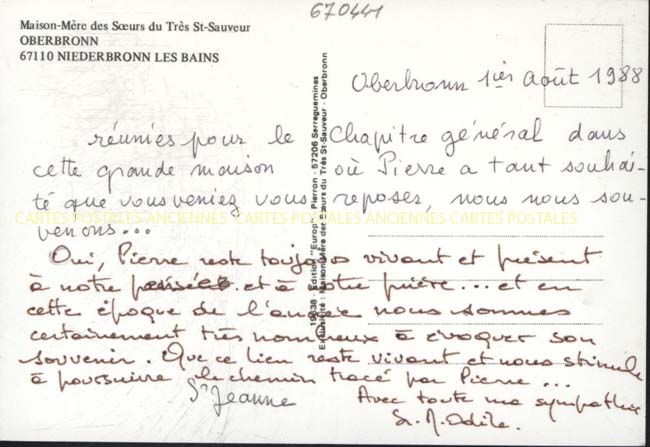 670441
Maison-Mère des Sœurs du Très St-Sauveur
OBERBRONN
67110 NIEDERBRONN LES BAINS
Oberbronn 1ier Août 1988
réunies pour le Chapitre général dans
cette grande maison où Pierre a tant souhai-
té que vous veniez vous reposer, nous nous sou-
venons...
Oui, Pierre reste toujours vivant et présent
à notre pensée et à notre prière... et en
cette époque de l'année nous sommes
certainement très nombreux à évoquer son
souvenir. Que ce lien reste vivant et nous stimule
à poursuivre le chemin tracé par Pierre...
Sr Jeanne
Avec toute ma sympathie
Sr. M. Odile.
19638 - Edition "Europ" - Pierron - 57206 Sarreguemines
Exclusivité: Maison-Mère des Sœurs du Très St-Sauveur - Oberbronn
CARTES POSTALES ANCIENNES CARTES POSTALES ANCIENNES CARTES POSTALES